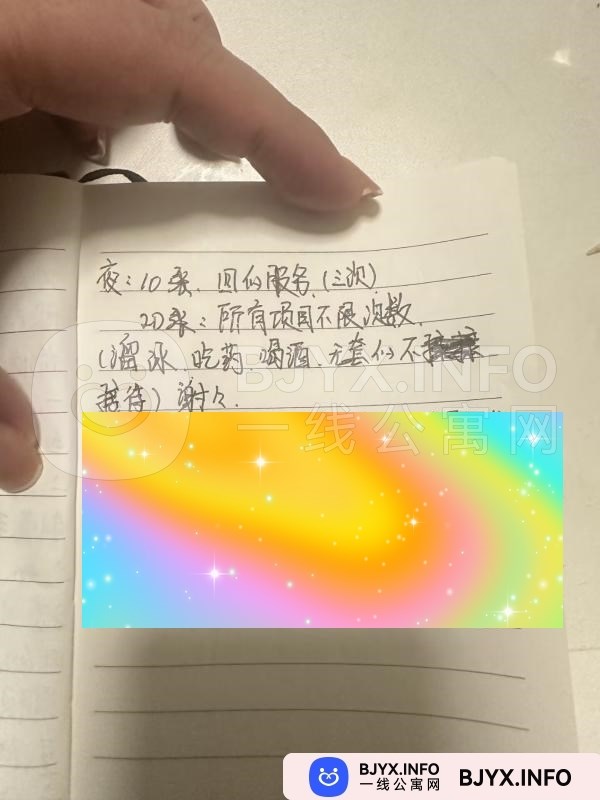 夜：10张．四的服务．(三次)
20张：所有项目不限次数．
(溜冰．吃药．喝酒．无套的不
接待) 谢谢．
BJYX.INFO
一线公寓网
BJYX.INFO
一线公寓网
BJYX.INFO